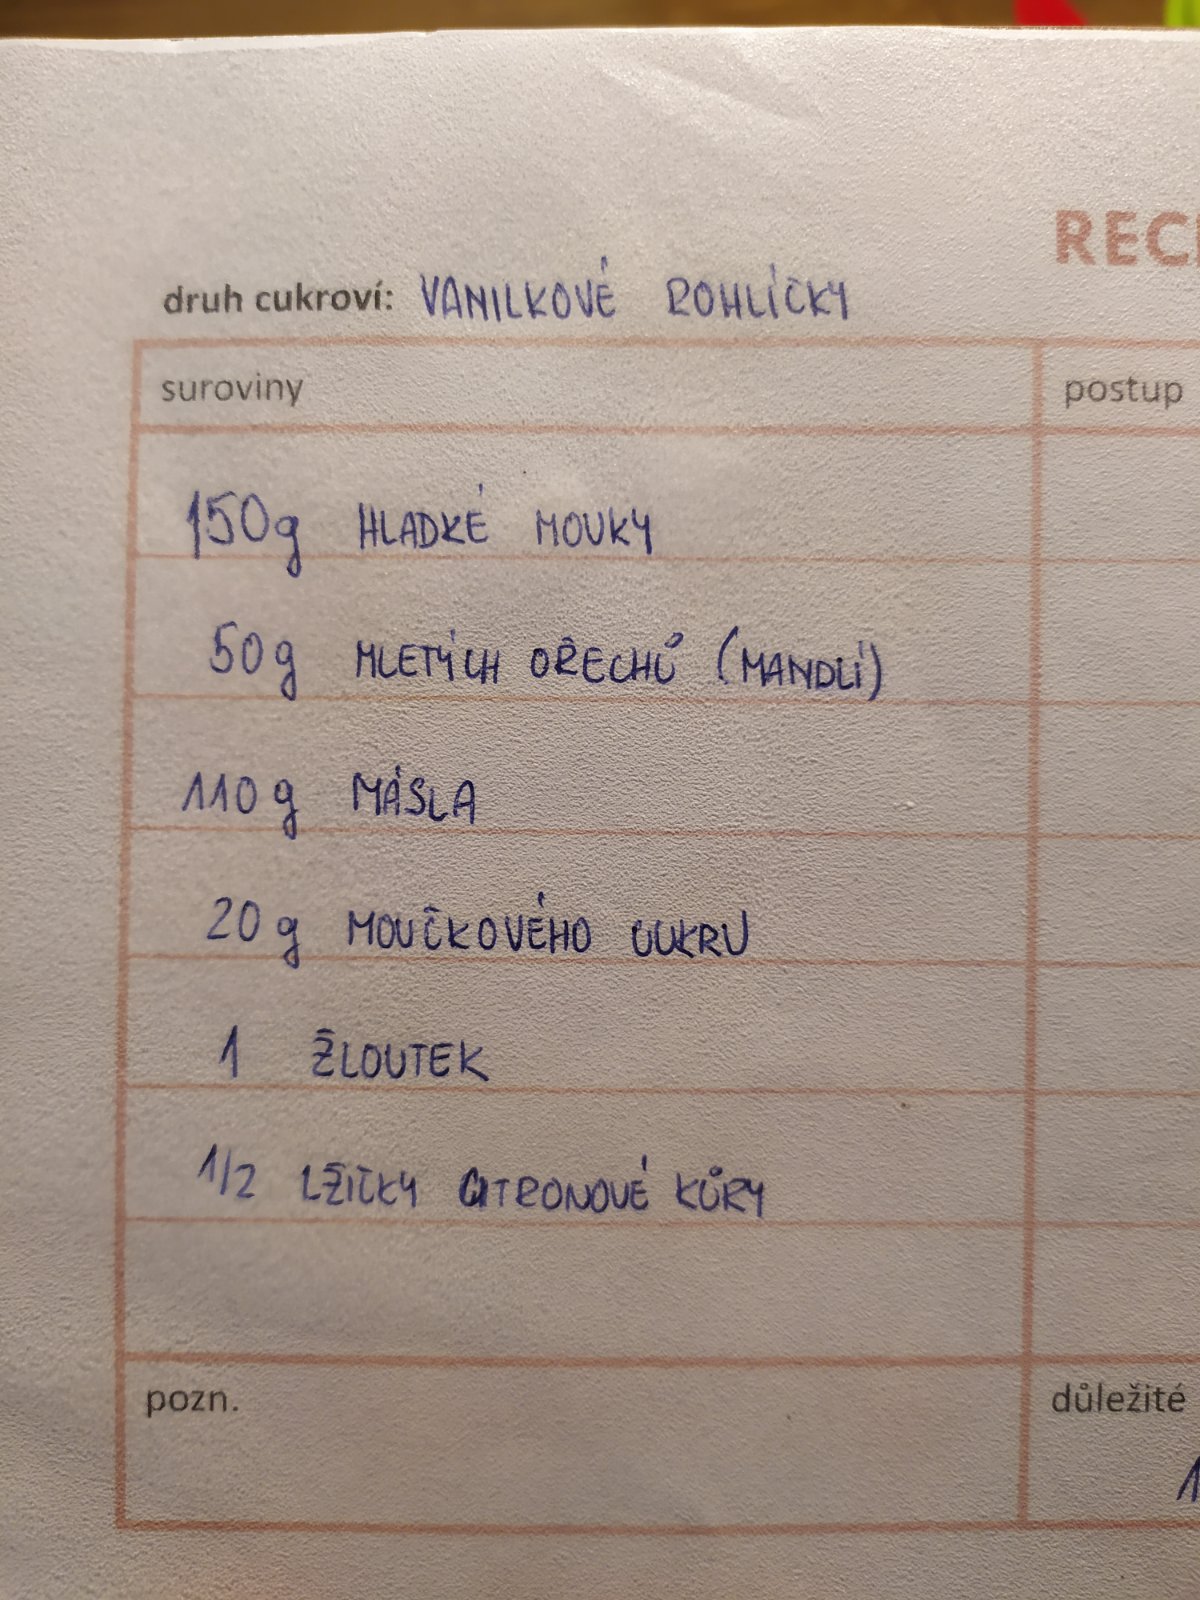 REC
druh cukroví: VANILKOVÉ ROHLÍČKY
suroviny
postup
150g HLADKÉ MOUKY
50g MLETÝCH OŘECHŮ (MANDLÍ)
110g MÁSLA
20g MOUČKOVÉHO CUKRU
1 ŽLOUTEK
1/2 LŽIČKY CITRONOVÉ KŮRY
pozn.
důležité
1